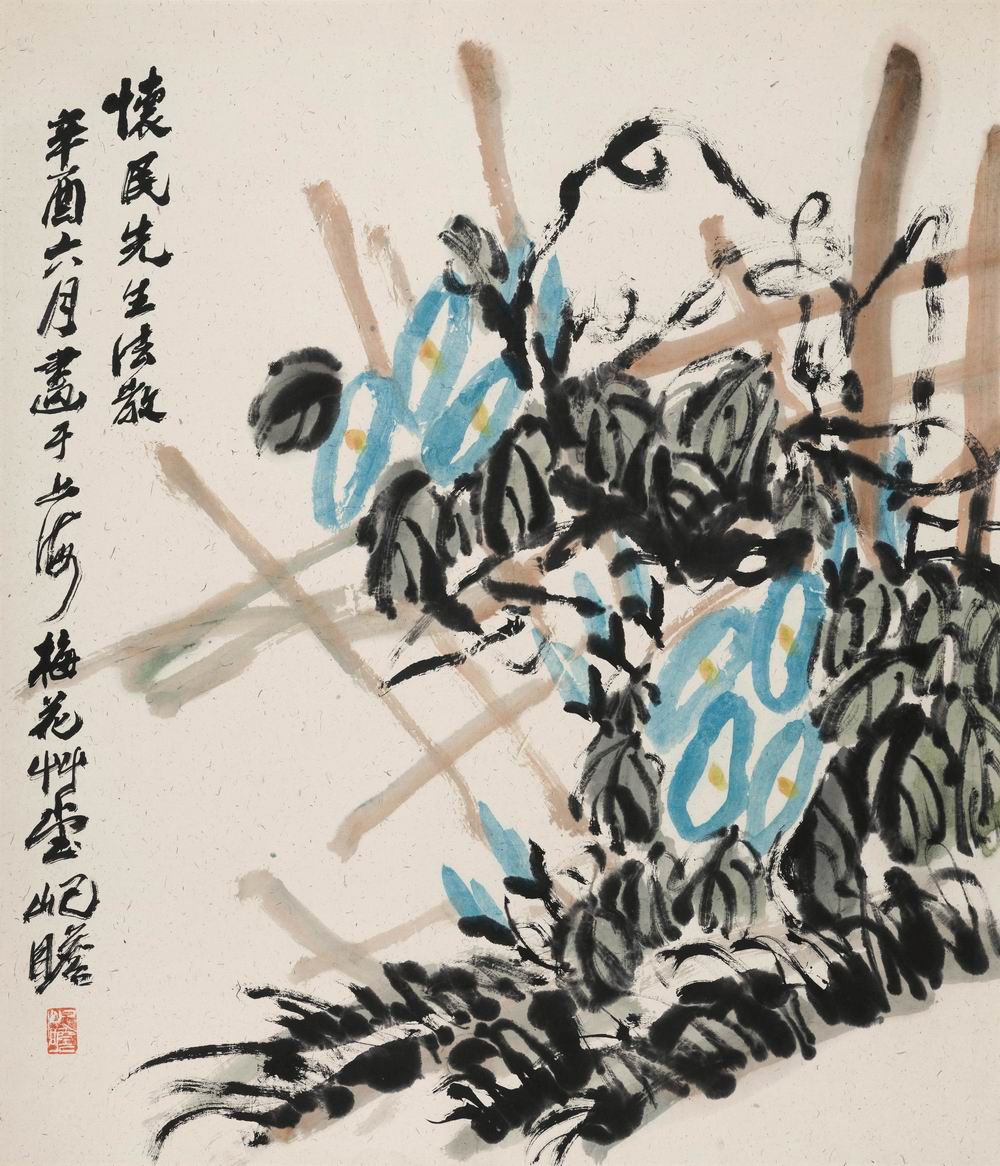 懷民先生法教
辛酉六月畫于上海梅花艸堂屺瞻